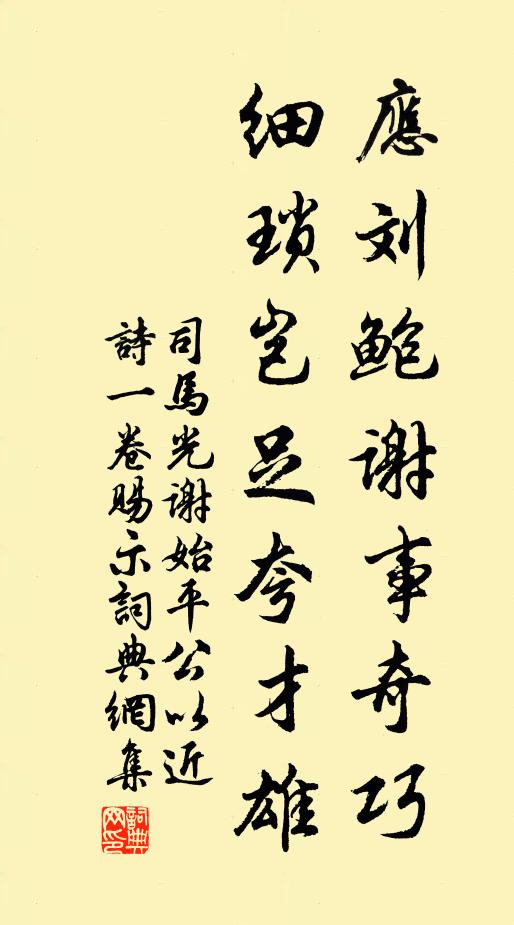 應刘鲍謝事奇巧
细琐岂足夸才雄
司馬光謝始平公以近
詩一卷賜示詞典網集
詞典網印